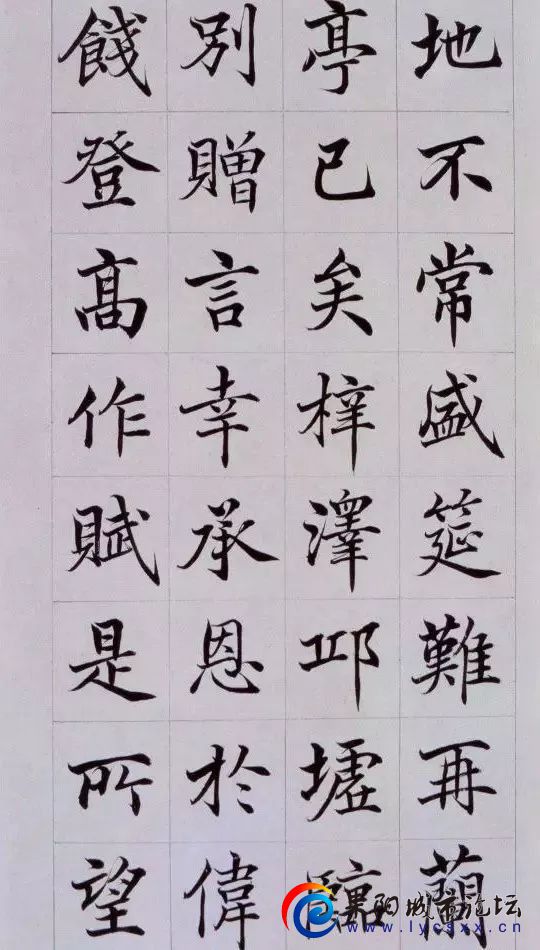 地不常盛筵難再蘭
亭已矣梓澤邱墟臨
別贈言幸承恩於偉
餞登髙作賦是所望
阳城市论坛
www.lycsxx.cn